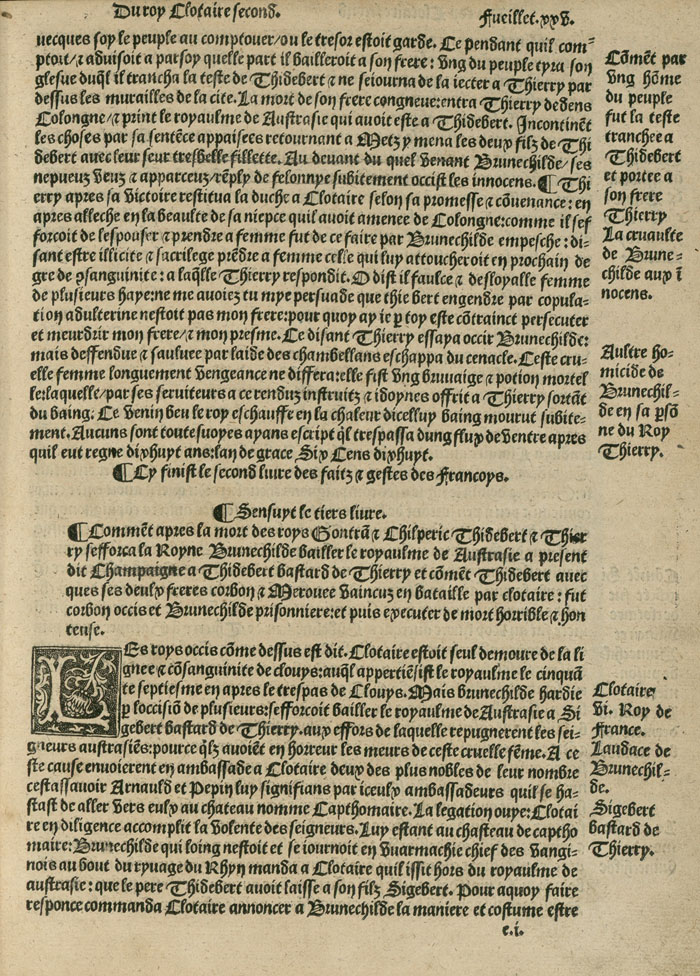 Du roy Clotaire second.
Fueillet.xxv.
uecques soy le peuple au comptouer/ou le tresor estoit garde. Ce pendant quil com⸗
ptoit/⁊ aduisoit a par soy quelle part il bailleroit a son frere: vng du peuple tyra son
glesue duq̃l il trancha la teste de Thidebert ⁊ ne seiourna de la iecter a Thierry par
dessus les murailles de la cite. La mort de son frere congneue:entra Thierry dedens
Colongne/⁊ print le royaulme de Austrasie qui auoit este a Thidebert. Incontinẽt
les choses par sa sentẽce appaisees retournant a Metz y mena les deux filz de Thi
debert auec leur seur tresbelle fillette. Au deuant du quel venant Brunechilde/ses
nepueuz veuz ⁊ apparceuz/rẽply de felonnye subitement occist les innocens.¶Thi
erry apres sa victoire restitua la duche a Clotaire selon sa promesse ⁊ cõuenance: en
apres alleche en la beaulte de sa niepce quil auoit amenee de Colongne:comme il sef
forcoit de lespouser ⁊ prendre a femme fut de ce faire par Brunechilde empesche: di⸗
sant estre illicite ⁊ sacrilege prẽdre a femme celle qui luy attoucheroit en prochain de
gre de ꝯsanguinite: a laq̃lle Thierry respondit. O dist il faulce ⁊ desloyalle femme
de plusieurs haye:ne me auoiez tu mye persuade que thie bert engendre par copula⸗
tion adulterine nestoit pas mon frere:pour quoy ay ie ꝑ toy este cõtrainct persecuter
et meurdrir mon frere/⁊ mon presme. Ce disant Thierry essaya occir Brunechilde:
mais deffendue ⁊ sauluee par laide des chambellans eschappa du cenacle. Ceste cru⸗
elle femme longuement vengeance ne differa:elle fist vng bruuaige ⁊ potion mortel
le:laquelle/par ses seruiteurs a ce renduz instruitz ⁊ idoynes offrit a Thierry sortãt
du baing. Ce venin beu le roy eschauffe en la chaleur dicelluy baing mourut subite⸗
ment. Aucuns sont toutesuoyes ayans escript q̃l trespassa dung flux de ventre apres
quil eut regne dixhuyt ans:lan de grace Six Cens dixhuyt.
¶Cy finist le second liure des faitz ⁊ gestes des Francoys.
Cõmẽt par
vng hõme
du peuple
fut la teste
tranchee a
Thidebert
et portee a
son frere
Thierry
La cruaulte
de Brune⸗
childe aux ĩ
nocens.
Aultre ho⸗
micide de
Brunechil⸗
de en sa ꝑsõ
ne du Roy
Thierry.
¶Sensuyt le tiers liure.
¶Commẽt apres la mort des roys Gontrã ⁊ Chilperic Thidebert ⁊ Thier
ry sefforca la Royne Brunechilde bailler le royaulme de Austrasie a present
dit Champaigne a Thidebert bastard de Thierry et cõmẽt Thidebert auec
ques ses deulx freres corbon ⁊ Merouee vaincuz en bataille par clotaire: fut
corbon occis et Brunechilde prisonniere:et puis executer de mort horrible ⁊ hon
teuse.
LEs roys occis cõme dessus est dit. Clotaire estoit seul demoure de la li
gnee ⁊ cõsanguinite de clouys:auq̃l appertiẽsist le royaulme le cinquã
te septiesme en apres le trespas de Clouys. Mais brunechilde hardie
ꝑ loccisiõ de plusieurs:sefforcoit bailler le royaulme de Austrasie a Si
gebert bastard de Thierry.aux effors de laquelle repugnerent les sei⸗
gneurs austrasiẽs:pource q̃lz auoiẽt en horreur les meurs de ceste cruelle fẽme. A ce
ste cause enuoierent en ambassade a Clotaire deux des plus nobles de leur nombre
cestassauoir Arnauld et Pepin luy signifians par iceulx ambassadeurs quil se ha⸗
stast de aller vers eulx au chateau nomme Capthomaire. La legation ouye: Clotai
re en diligence accomplit la volente des seigneurs. Luy estant au chasteau de captho
maire: Brunechilde qui loing nestoit et se iournoit en vuarmachie chief des vangi⸗
nois au bout du ryuage du Rhyn manda a Clotaire quil issit hors du royaulme de
austrasie: que le pere Thidebert auoit laisse a son filz Sigebert. Pour aquoy faire
responce commanda Clotaire annoncer a Brunechilde la maniere et costume estre
Clotaire
vi. Roy de
France.
Laudace de
Brunechil⸗
de.
Sigebert
bastard de
Thierry.
e.i.